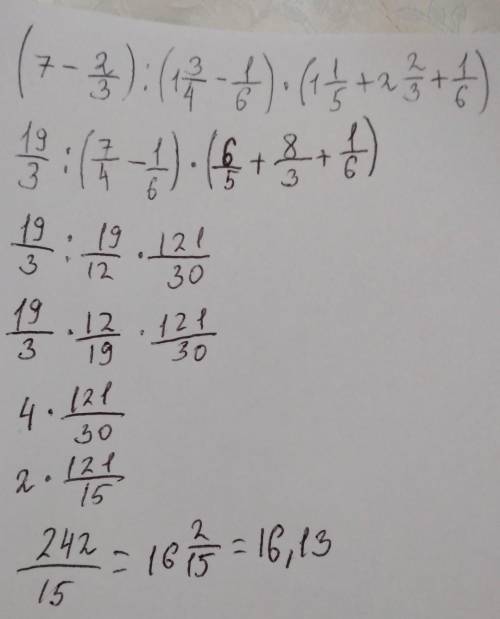 (7 - 2/3) : (1 3/4 - 1/6) · (1 1/5 + 2 2/3 + 1/6)
19/3 : (7/4 - 1/6) · (6/5 + 8/3 + 1/6)
19/3 : 19/12 · 121/30
19/3 · 12/19 · 121/30
4 · 121/30
2 · 121/15
242/15 = 16 2/15 = 16,13